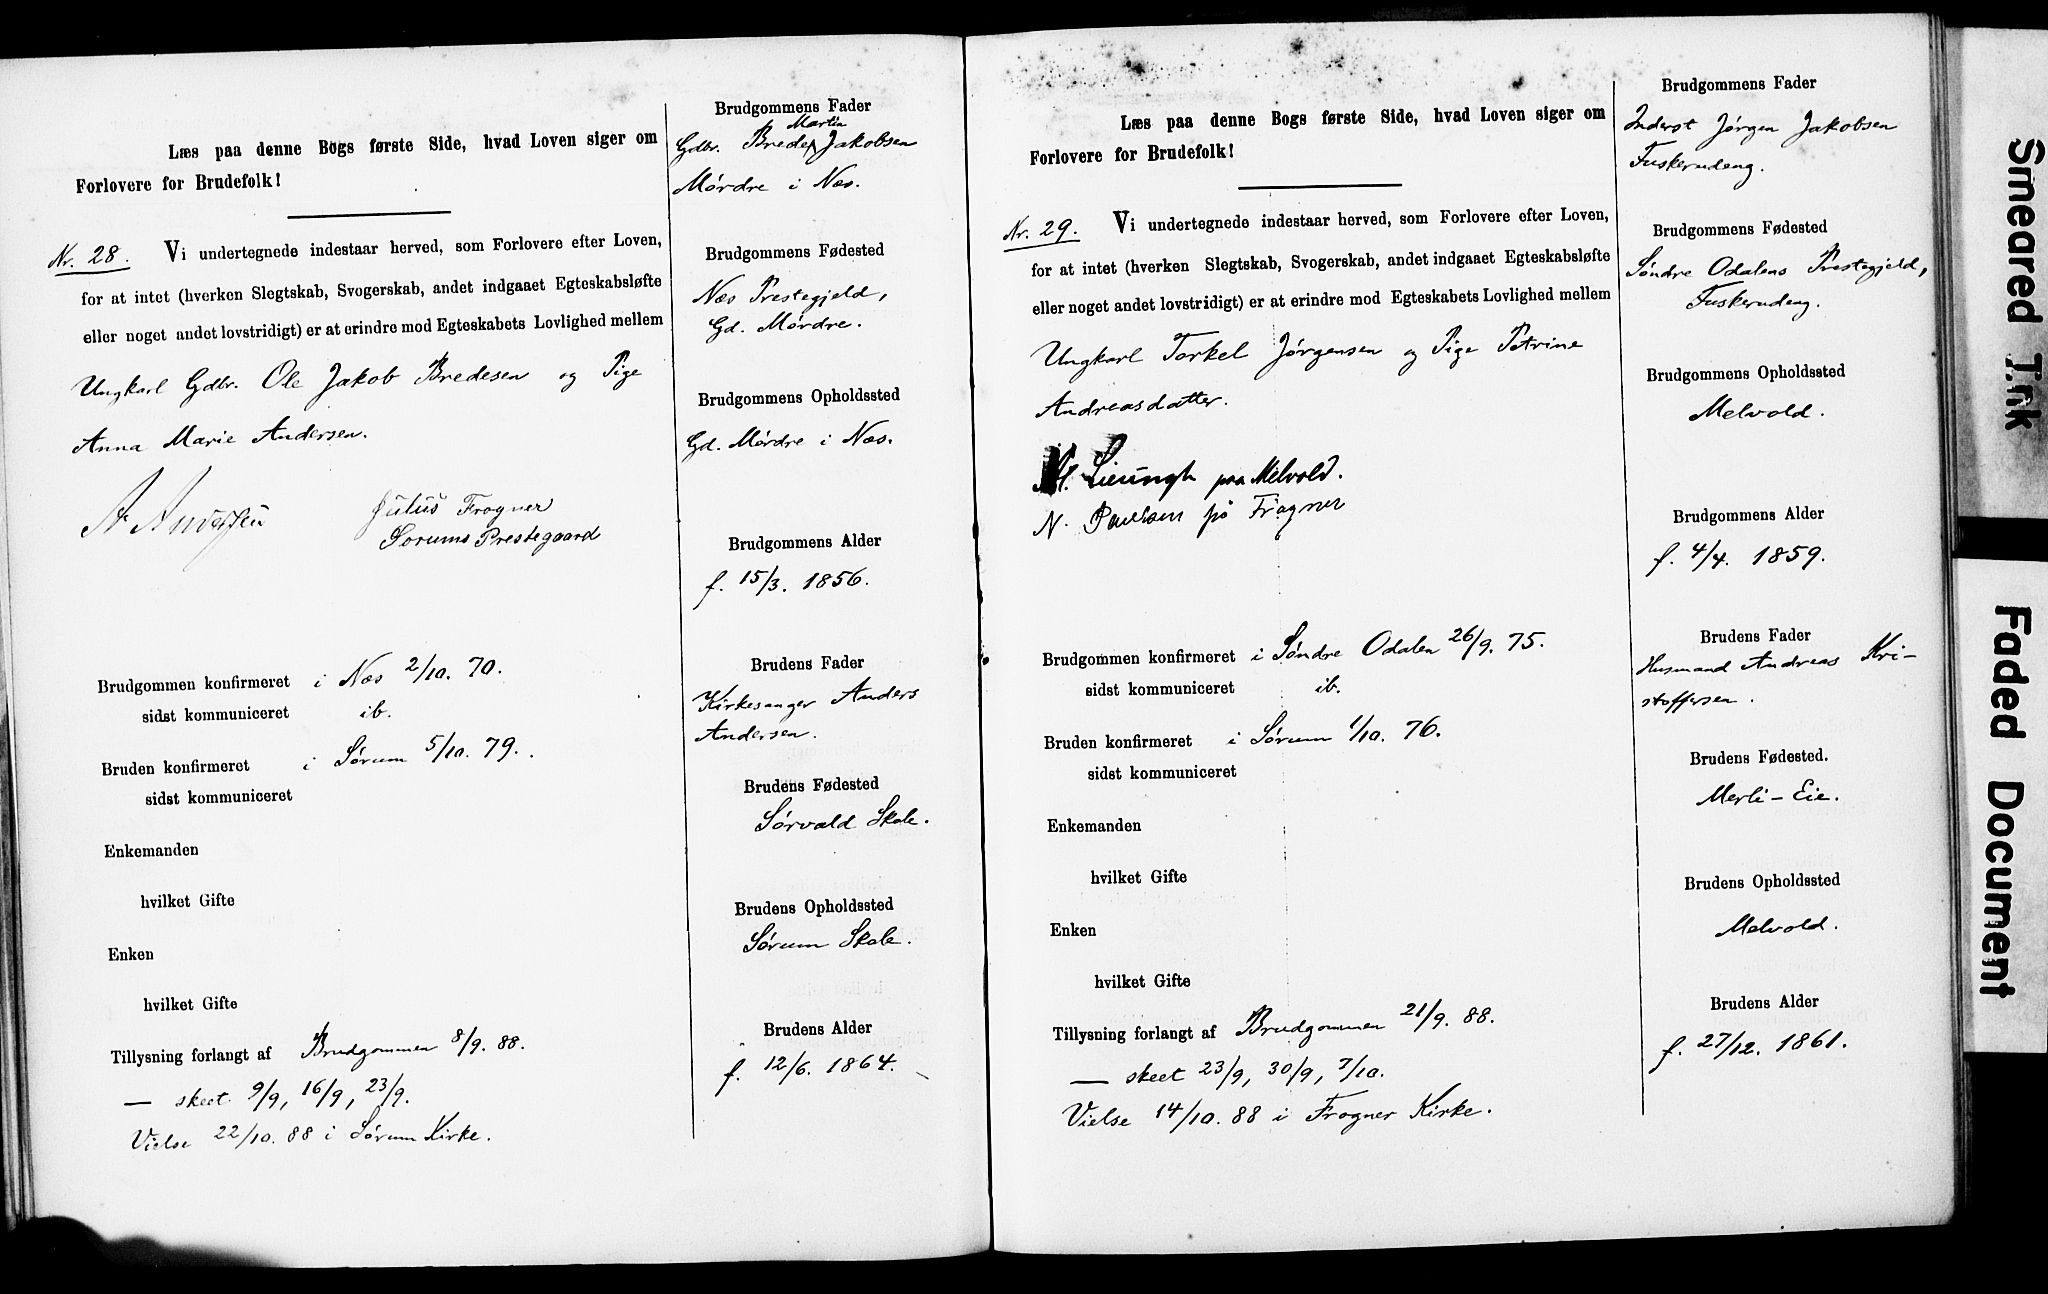 Læs paa denne Bogs første Side, hvad Loven siger om
Forlovere for Brudefolk!
Nr. 28. Vi undertegnede indestaar herved, som Forlovere efter Loven,
for at intet (hverken Slegtskab, Svogerskab, andet indgaaet Egteskabsløfte
eller noget andet lovstridigt) er at erindre mod Egteskabets Lovlighed mellem
Ungkarl Gdbr. Ole Jakob Bredesen og Pige
Anna Marie Andersen.
A Andersen
Julius Frogner
Sorums Prestegaard
Brudgommen konfirmeret i Næs 2/10. 70.
sidst kommuniceret ib.
Bruden konfirmeret i Sørum 5/10. 79.
sidst kommuniceret
Enkemanden
hvilket Gifte
Enken
hvilket Gifte
Tillysning forlangt af Brudgommen 8/9. 88.
— skeet 9/9, 16/9, 23/9.
Vielse 22/10. 88 i Sørum Kirke.
Brudgommens Fader
Martin
Gdbr. Brede Jakobsen
Mørdre i Næs.
Brudgommens Fødested
Næs Prestegjeld,
Gd. Mørdre.
Brudgommens Opholdssted
Gd. Mørdre i Næs.
Brudgommens Alder
f. 15/3. 1856.
Brudens Fader
Kirkesanger Anders
Andersen.
Brudens Fødested
Sørvald Skole.
Brudens Opholdssted
Sørum Skole.
Brudens Alder
f. 12/6. 1864.
Læs paa denne Bogs første Side, hvad Loven siger om
Forlovere for Brudefolk!
Nr. 29. Vi undertegnede indestaar herved, som Forlovere efter Loven,
for at intet (hverken Slegtskab, Svogerskab, andet indgaaet Egteskabsløfte
eller noget andet lovstridigt) er at erindre mod Egteskabets Lovlighed mellem
Ungkarl Torkel Jørgensen og Pige Petrine
Andreasdatter.
Lieungh paa Melvold.
N. Paulsen på Frogner
Brudgommen konfirmeret i Søndre Odalen 26/9. 75.
sidst kommuniceret ib.
Bruden konfirmeret i Sørum 1/10. 76.
sidst kommuniceret
Enkemanden
hvilket Gifte
Enken
hvilket Gifte
Tillysning forlangt af Brudgommen 21/9. 88.
— skeet 23/9, 30/9, 7/10.
Vielse 14/10. 88 i Frogner Kirke.
Brudgommens Fader
Inderst Jørgen Jakobsen
Fuskerudeng.
Brudgommens Fødested
Søndre Odalens Prestegjeld,
Fuskerudeng.
Brudgommens Opholdssted
Melvold.
Brudgommens Alder
f. 4/4. 1859.
Brudens Fader
Husmand Andreas Kri-
stoffersen.
Brudens Fødested.
Merli-Eie.
Brudens Opholdssted
Melvold.
Brudens Alder
f. 27/12. 1861.
Smeared Ink
Faded Document